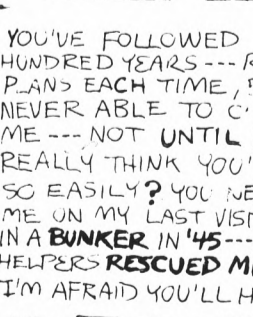 YOU'VE FOLLOWED
HUNDRED YEARS ---
PLANS EACH TIME,
NEVER ABLE TO
ME --- NOT UNTIL
REALLY THINK YOU'
SO EASILY? YOU
ME ON MY LAST
IN A BUNKER IN '45 ---
HELPERS RESCUED
I'M AFRAID YOU'LL